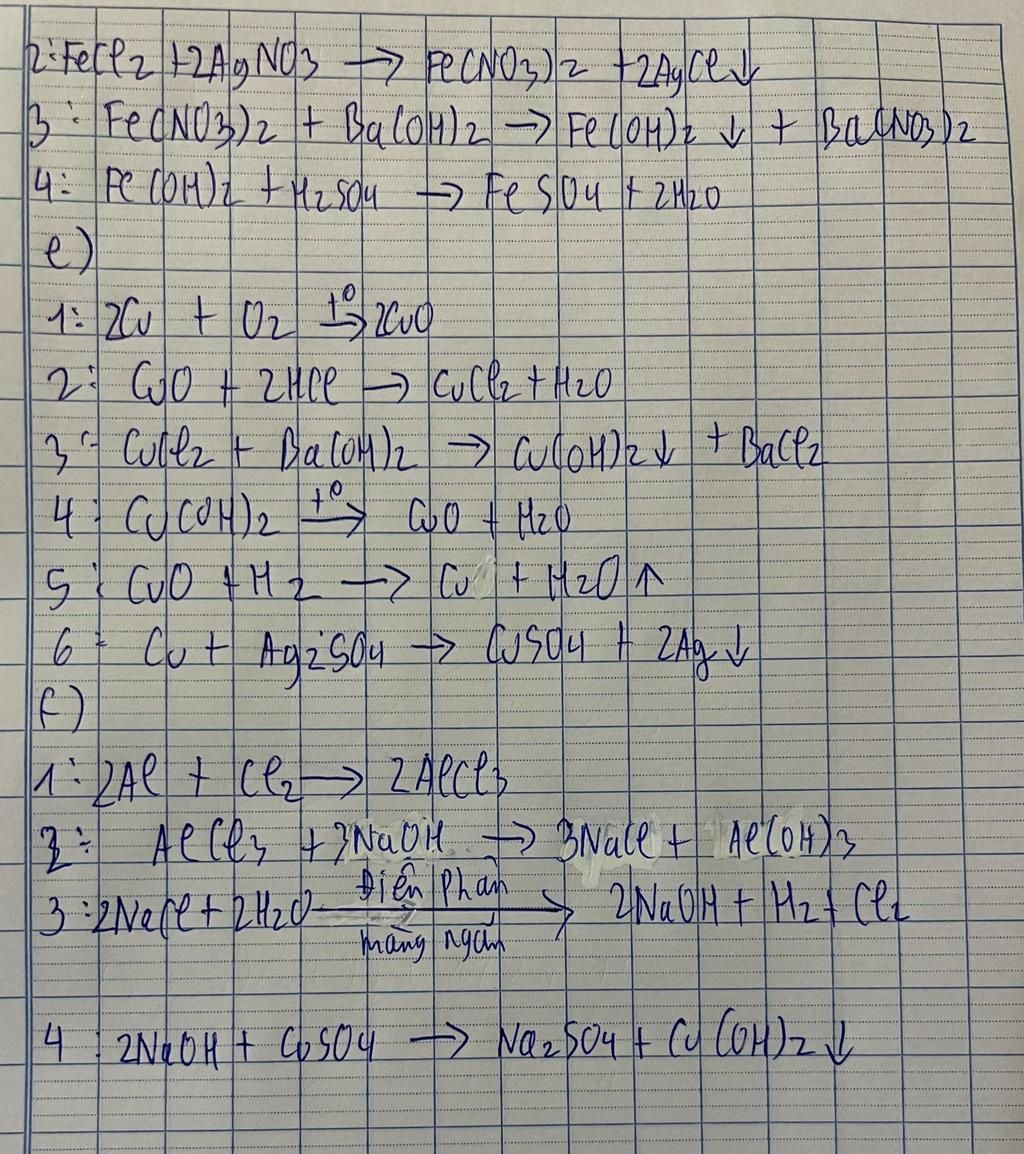 2: FeCl2 + 2AgNO3 → Fe(NO3)2 + 2AgCl↓
3: Fe(NO3)2 + Ba(OH)2 → Fe(OH)2 ↓ + Ba(NO3)2
4: Fe(OH)2 + H2SO4 → FeSO4 + 2H2O
e)
1: 2Cu + O2 t° → 2CuO
2: CuO + 2HCl → CuCl2 + H2O
3: CuCl2 + Ba(OH)2 → Cu(OH)2↓ + BaCl2
4: Cu(OH)2 t° → CuO + H2O
5: CuO + H2 → Cu + H2O ↑
6: Cu + Ag2SO4 → CuSO4 + 2Ag↓
f)
1: 2Al + Cl2 → 2AlCl3
2: AlCl3 + 3NaOH → 3NaCl + Al(OH)3
3: 2NaCl + 2H2O Điện phân màng ngăn → 2NaOH + H2 + Cl2
4: 2NaOH + CuSO4 → Na2SO4 + Cu(OH)2↓